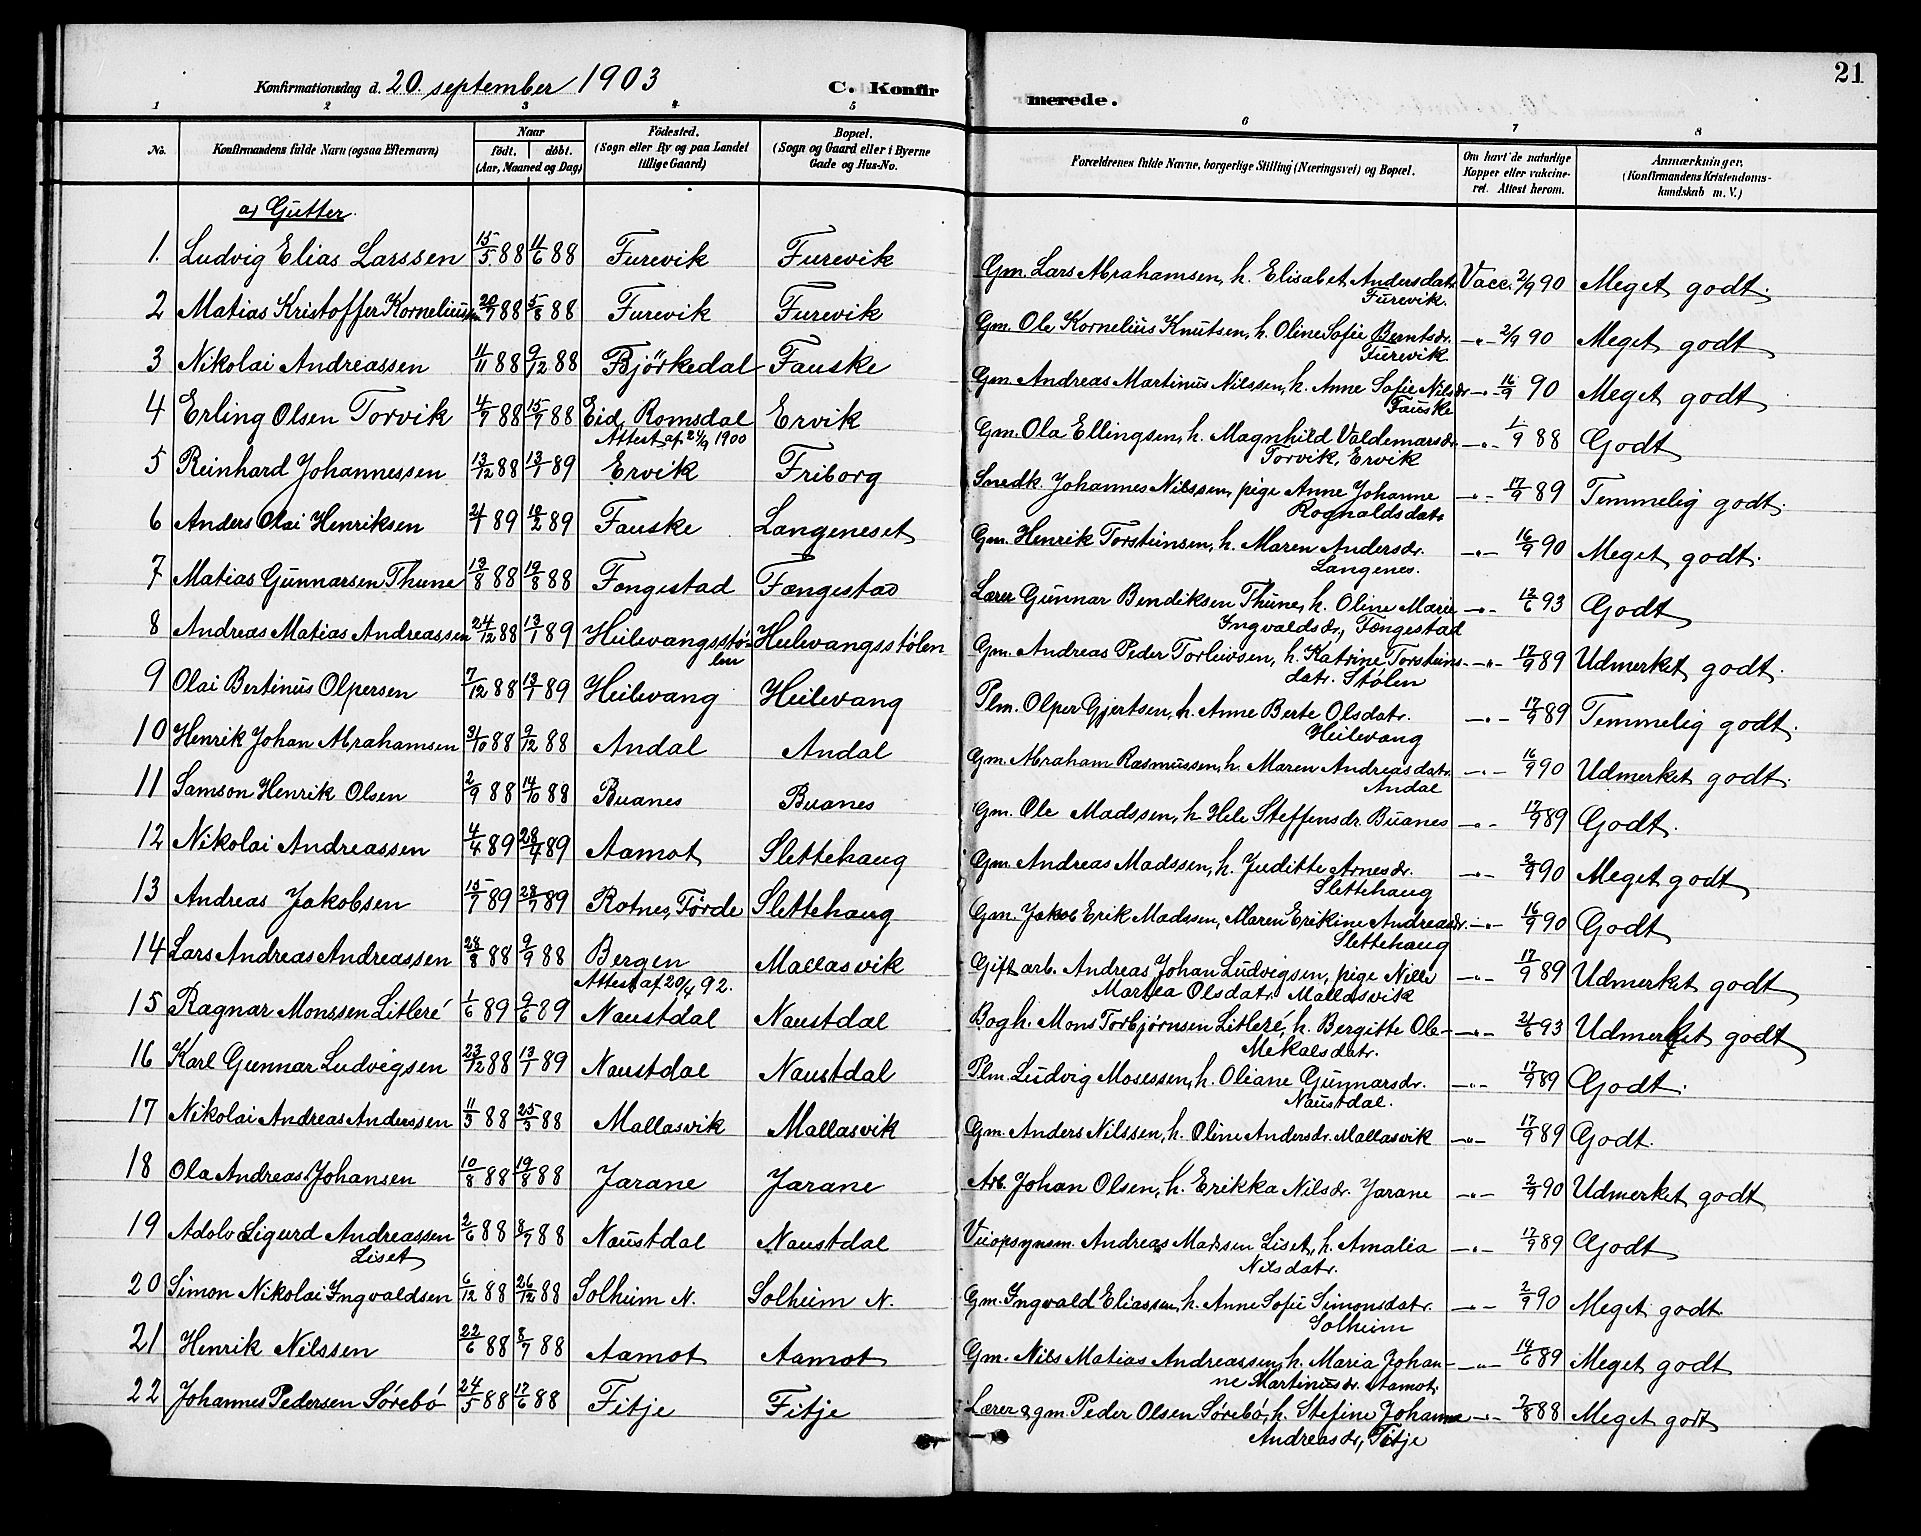 Konfirmationsdag d. 20 september 1903 C. Konfir merede. 21
1 2 3 4 5 6 7 8
No. Konfirmandens fulde Navn (ogsaa Efternavn) Naar født. døbt. (Aar, Maaned og Dag) Fødested. (Sogn eller By og paa Landet tillige Gaard) Bopæl. (Sogn og Gaard eller i Byerne Gade og Hus-No. Forældrenes fulde Navne, borgerlige Stilling (Næringsvei) og Bopæl. Om havt de naturlige Kopper eller vakcineret. Attest herom. Anmærkninger. (Konfirmandens Kristendomskundskab m. V.)
a) Gutter.
1. Ludvig Elias Larssen 15/5 88 11/6 88 Furevik Furevik Gm. Lars Abrahamsen, h. Elisabet Andersdatr. Vacc. 2/9 90 Meget godt.
Furevik.
2 Matias Kristoffer Korneliussen 20/7 88 5/8 88 Furevik Furevik Gm. Ole Kornelius Knutsen, h. Oline Sofie Berntsdr. -"- 2/9 90 Meget godt
Furevik
3 Nikolai Andreassen 4/11 88 9/12 88 Bjørkedal Fauske Gm. Andreas Martinus Nilssen, h. Anne Sofie Nilsdr -"- 16/9 90 Meget godt
Fauske
4 Erling Olsen Torvik 4/7 88 15/7 88 Eid, Romsdal Ervik Gm. Ola Ellingsen, h. Magnhild Valdemarsdr. -"- 1/9 88 Godt
Attest af 24/9 1900 Torvik, Ervik
5 Reinhard Johannessen 13/12 88 13/1 89 Ervik Friborg Snedk. Johannes Nilssen, pige Anne Johanne -"- 17/9 89 Temmelig godt.
Rognaldsdatr
6 Anders Olai Henriksen 2/1 89 10/2 89 Fauske Langeneset Gm. Henrik Torsteinsen, h. Maren Andersdr. -"- 16/9 90 Meget godt.
Langenes.
7 Matias Gunnarsen Thune 13/8 88 19/8 88 Fængestad Fængestad Lærer Gunnar Bendiksen Thune, h. Oline Marie -"- 12/6 93 Godt
Ingvaldsdr, Fængestad
8 Andreas Matias Andreassen 24/12 88 13/1 89 Heilevangsstø- Heilevangsstølen Gm. Andreas Peder Torleivsen, h. Katrine Torsteins- -"- 17/9 89 Udmerket godt.
len datr. Stølen
9 Olai Bertinus Olpersen 7/12 88 13/1 89 Heilevang Heilevang Plm. Olper Gjertsen, h. Anne Berte Olsdatr. -"- 17/9 89 Temmelig godt.
Heilevang
10 Henrik Johan Abrahamsen 31/10 88 9/12 88 Andal Andal Gm. Abraham Rasmussen, h. Maren Andreasdatr. -"- 16/9 90 Udmerket godt.
Andal
11 Samson Henrik Olsen 2/9 88 14/10 88 Buanes Buanes Gm. Ole Madssen, h. Hele Steffensdr. Buanes -"- 17/9 89 Godt.
12 Nikolai Andreassen 4/4 89 28/4 89 Aamot Slettehaug Gm. Andreas Madssen, h. Juditte Arnesdr. -"- 2/9 90 Meget godt
Slettehaug
13 Andreas Jakobsen 15/7 89 28/7 89 Rotnes, Førde Slettehaug Gm. Jakob Erik Madssen, Maren Erikine Andreasdr. -"- 16/9 90 Godt
Slettehaug
14 Lars Andreas Andreassen 28/8 88 9/9 88 Bergen Mallasvik Gift arb. Andreas Johan Ludvigsen, pige Nille -"- 17/9 89 Udmerket godt
Attest af 20/4 92. Martea Olsdatr. Mallasvik
15 Ragnar Monssen Litleré 1/6 89 9/6 89 Naustdal Naustdal Bogh. Mons Torbjørnsen Litleré, h. Bergitte Ole- -"- 21/6 93 Udmerket godt
Mekalsdatr.
16 Karl Gunnar Ludvigsen 23/12 88 13/1 89 Naustdal Naustdal Plm. Ludvig Mosessen, h. Oliane Gunnarsdr. -"- 17/9 89 Godt.
Naustdal.
17 Nikolai Andreas Anderssen 11/3 88 25/3 88 Mallasvik Mallasvik Gm. Anders Nilssen, h. Oline Andersdr. Mallasvik -"- 17/9 89 Godt.
18 Ola Andreas Johansen 10/8 88 19/8 88 Jarane Jarane Arb. Johan Olsen, h. Erikka Nilsdr. Jarane -"- 2/9 90 Udmerket godt
19 Adolv Sigurd Andreassen 2/6 88 8/7 88 Naustdal Naustdal Veiopsynsm. Andreas Madsen Liset, h. Amalia -"- 17/9 89 Godt
Liset Nilsdatr.
20 Simon Nikolai Ingvaldsen 6/12 88 26/12 88 Solheim N. Solheim N. Gm. Ingvald Eliassen, h. Anne Sofie Simonsdatr. -"- 2/9 90 Meget godt.
Solheim
21 Henrik Nilssen 22/6 88 8/7 88 Aamot Aamot Gm. Nils Matias Andreassen, h. Maria Johan- -"- 14/6 89 Meget godt
ne Martinusdr. Aamot.
22 Johannes Pedersen Sørebó 24/5 88 17/6 88 Fitje Fitje Lærer & gm. Peder Olsen Sørebó, h. Stefine Johanna -"- 7/8 88 Meget godt
Andreasdr, Fitje